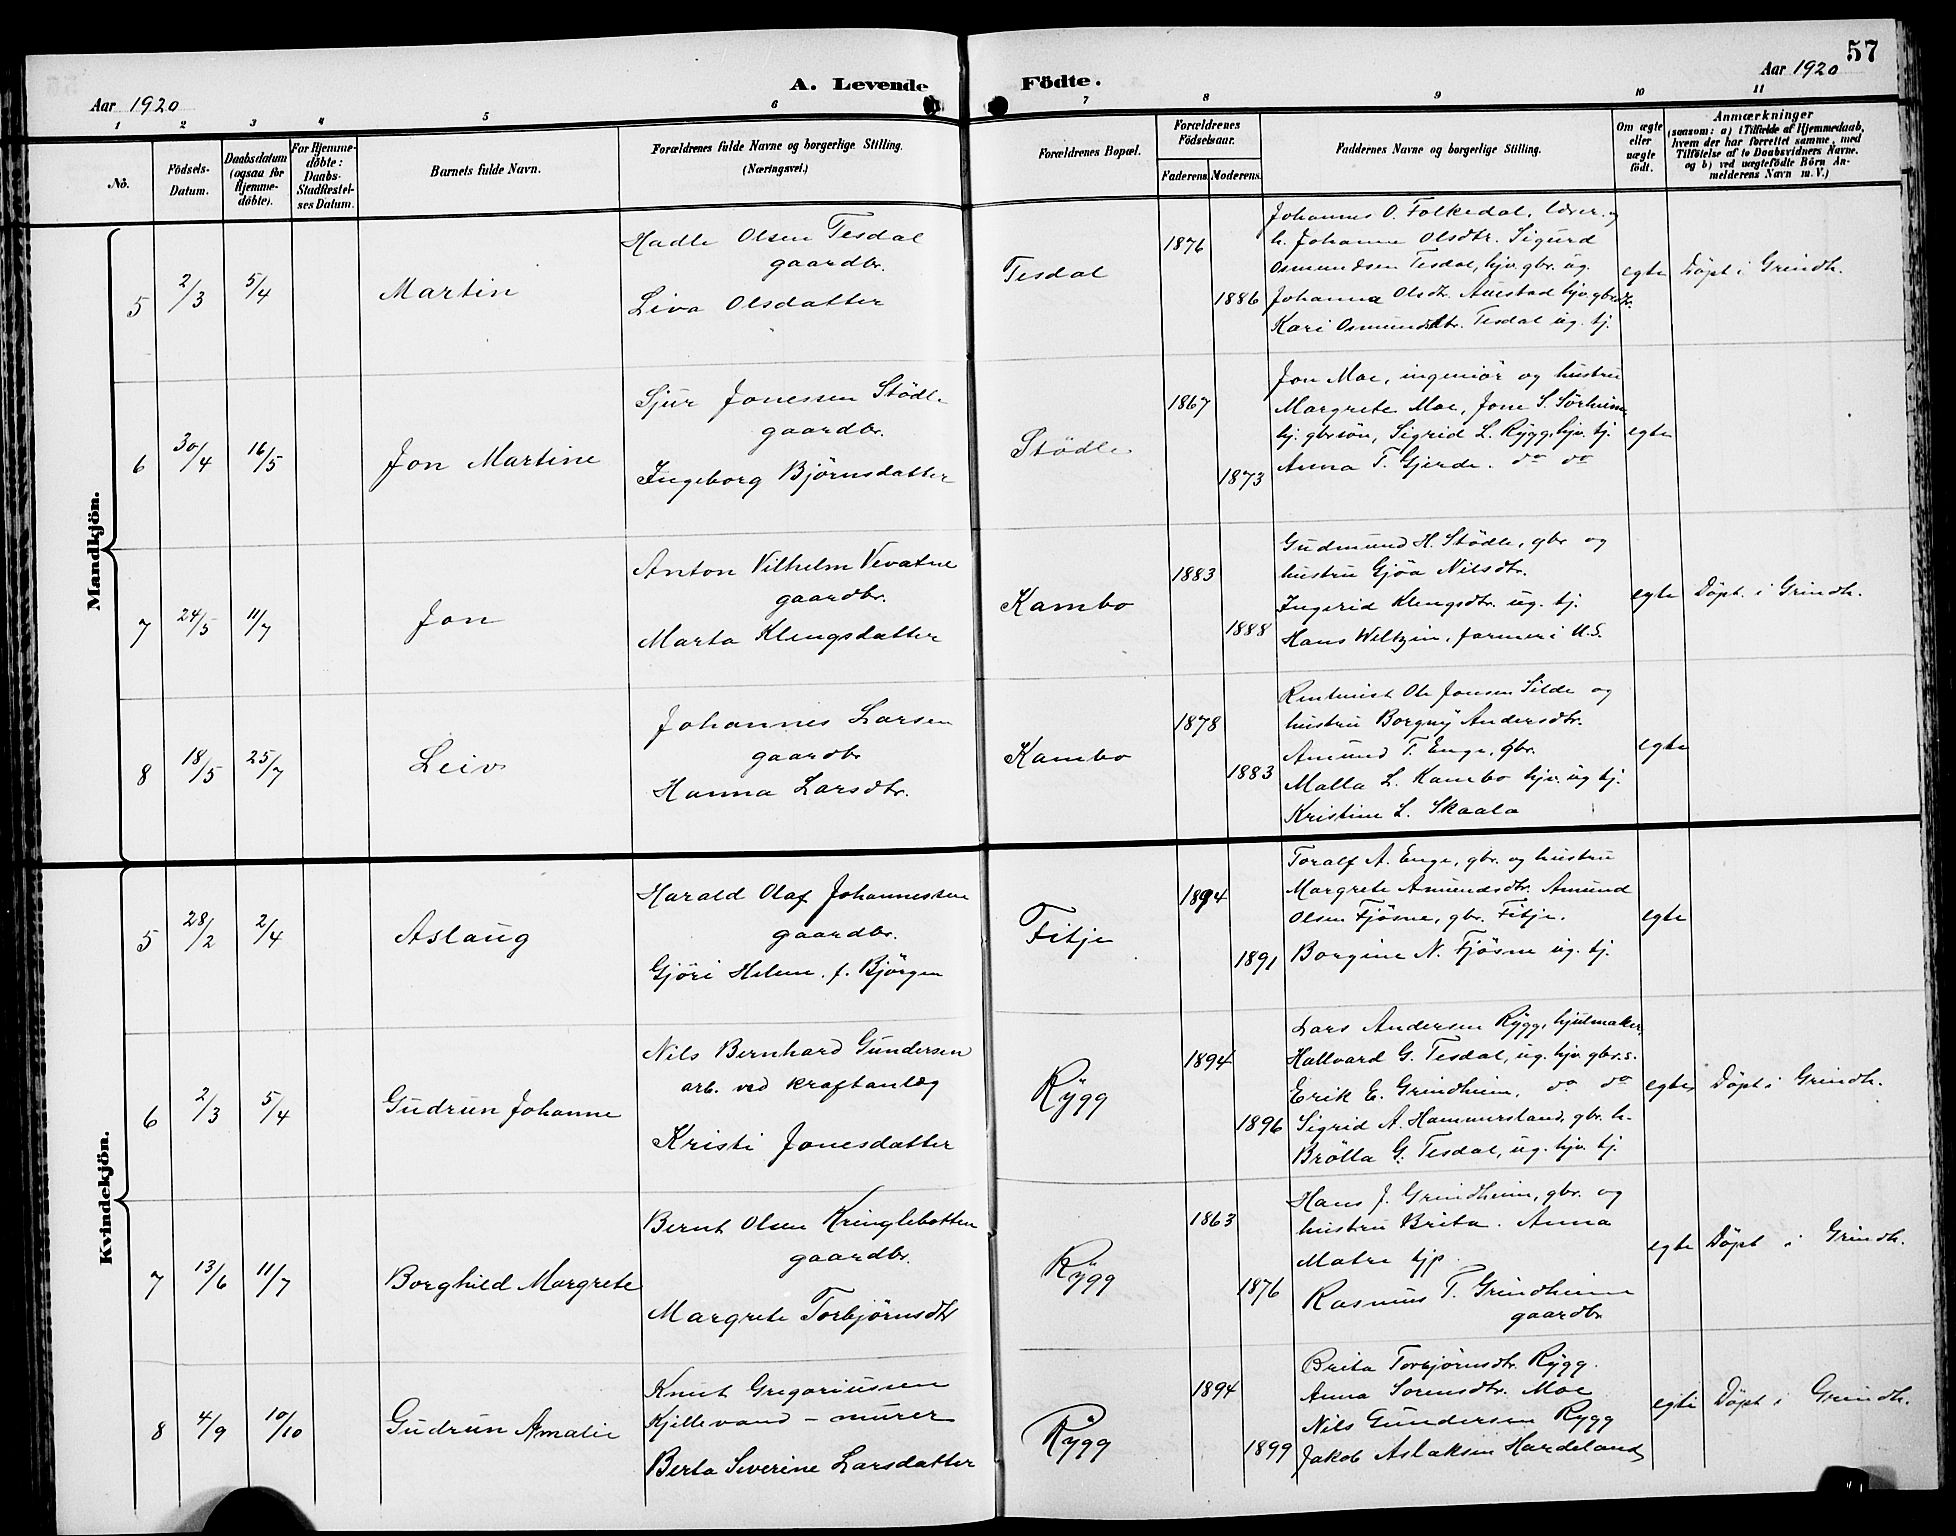 57
Aar 1920
A. Levende
Födte.
Aar 1920
1 2 3 4 5 6 7 8 9 10 11
Nö.
Födsels-Datum.
Daabsdatum (ogsaa for Hjemme-döbte).
For Hjemme-döbte: Daabs-Stadfæstel-ses Datum.
Barnets fulde Navn.
Forældrenes fulde Navne og borgerlige Stilling.
(Næringsvei.)
Forældrenes Bopæl.
Forældrenes Födselsaar.
Faderens.
Moderens.
Faddernes Navne og borgerlige Stilling.
Om ægte eller uægte födt.
Anmærkninger
(saasom: a) i Tilfælde af Hjemmedaab,
hvem der har forrettet samme, med
Tilföielse af to Daabsvidners Navne.
og b) ved uægtefödte Börn An-
melderens Navn m. V.)
Mandkjön.
5 2/3 5/4 Martin
Hadle Olsen Tesdal
gaardbr.
Liva Olsdatter
Tesdal
1876
1886
Johannes O. Folkedal, lærer og
h. Johanne Olsdtr. Sigurd
Osmundsen Tesdal, hjv. gbr. ug.
Johanna Olsdtr. Auestad hjv. gbrdtr.
Kari Osmundsdtr. Tesdal ug. tj.
egte
Döpt i Grindh.
6 30/4 16/5 Jon Martine
Sjur Jonessen Stödle
gaardbr.
Ingeborg Björnsdatter
Stödle
1867
1873
Jon Moe, ingeniör og hustru
Margrete Moe, Jone S. Sörheim
hj. gbrsön, Sigrid L. Rygg, hjv. tj.
Anna T. Gjerde. do do
egte
7 24/5 11/7 Jon
Anton Vilhelm Vevatne
gaardbr.
Marta Klengsdatter
Kambo
1883
1888
Gudmund H. Stödle, gbr og
hustru Gjöa Nilsdtr.
Ingerid Klengsdtr. ug. tj.
Hans Weltzin, farmer i U.S.
egte
Döpt. i Grindh.
8 18/5 25/7 Leiv
Johannes Larsen
gaardbr
Hanna Larsdtr.
Kambo
1878
1883
Rentenist Ole Jonsen Silde og
hustru Borgny Andersdtr.
Amund T. Enge, gbr.
Malla L. Kambo hjv. ug tj.
Kristine L. Skaala
egte
Kvindekjön.
5 28/2 2/4 Aslaug
Harald Olaf Johannessen
gaardbr.
Gjöri Helene f. Björgen
Fitje
1894
1891
Toralf A. Enge, gbr. og hustru
Margrete Amundsdtr. Amund
Olsen Fjösne, gbr. Fitje.
Borgine N. Fjösne ug. tj.
egte
6 2/3 5/4 Gudrun Johanne
Nils Bernhard Gundersen
arb. ved kraftanlæg
Kristi Jonesdatter
Rygg
1894
1896
Lars Andersen Rygg, hjulmaker,
Hallvard G. Tesdal, ug. hjv. gbr.s.
Erik E. Grindheim, do do
Sigrid A. Hammersland, gbr. h.
Brölla G. Tesdal, ug. hjv. tj.
egte
Döpt i Grindh.
7 13/6 11/7 Borghild Margrete
Bernt Olsen Kringlebotten
gaardbr.
Margrete Torbjörnsdtr
Rygg
1863
1876
Hans J. Grindheim, gbr. og
hustru Brita. Anna
Matre tjp.
Rasmus T. Grindheim
gaardbr
egte
Döpt i Grindh.
8 4/9 10/10 Gudrun Amalie
Knut Gregoriussen
Kjillevand - murer
Berta Severine Larsdatter
Rygg
1894
1899
Brita Torbjörnsdtr. Rygg.
Anna Sorensdtr. Moe
Nils Gundersen Rygg
Jakob Aslaksen Hardeland
egte
Döpt i Grindh.